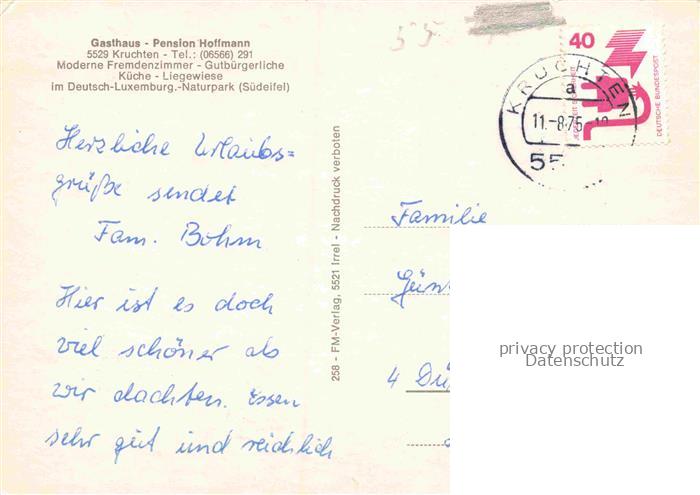 Gasthaus - Pension Hoffmann
5529 Kruchten - Tel.: (06566) 291
Moderne Fremdenzimmer - Gutbürgerliche
Küche - Liegewiese
im Deutsch-Luxemburg.-Naturpark (Südeifel)
Herzliche Urlaubs=
grüße sendet
Fam. Bohm
Hier ist es doch
viel schöner als
wir dachten. Essen
sehr gut und reichlich
258 - FM-Verlag, 5521 Irrel - Nachdruck verboten
55
40
DEUTSCHE BUNDESPOST
KRUCHTEN
a
11.-8.75
55
Familie
Gün
4 Dü
privacy protection
Datenschutz